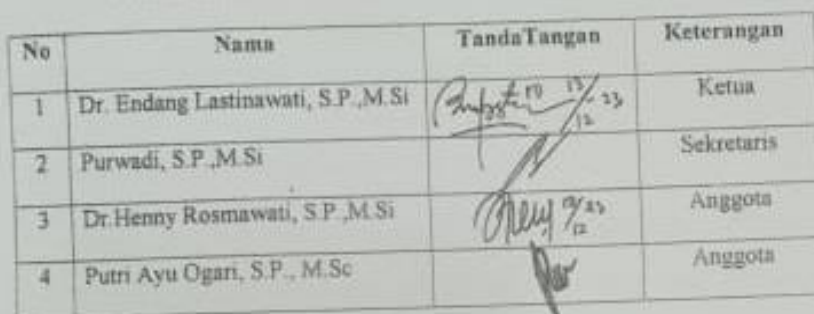 No Nama TandaTangan Keterangan
1 Dr. Endang Lastinawati, S.P.,M.Si 13/12 23 Ketua
2 Purwadi, S.P.,M.Si Sekretaris
3 Dr.Henny Rosmawati, S.P.,M.Si /12 23 Anggota
4 Putri Ayu Ogari, S.P., M.Sc Anggota